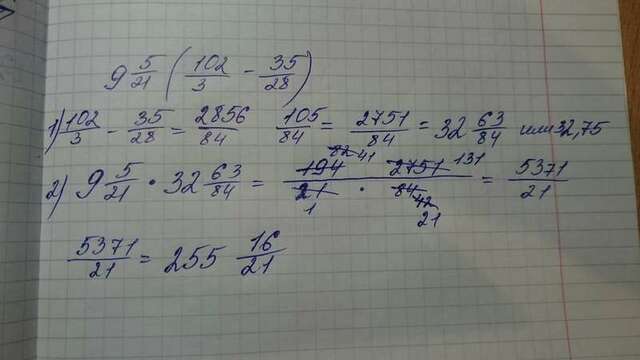 9 5/21 (102/3 - 35/28)
1) 102/3 - 35/28 = 2856/84 105/84 = 2751/84 = 32 63/84 или 32,75
2) 9 5/21 · 32 63/84 = 194 82 41 · 2751 131 / 21 1 · 84 42 21 = 5371/21
5371/21 = 255 16/21